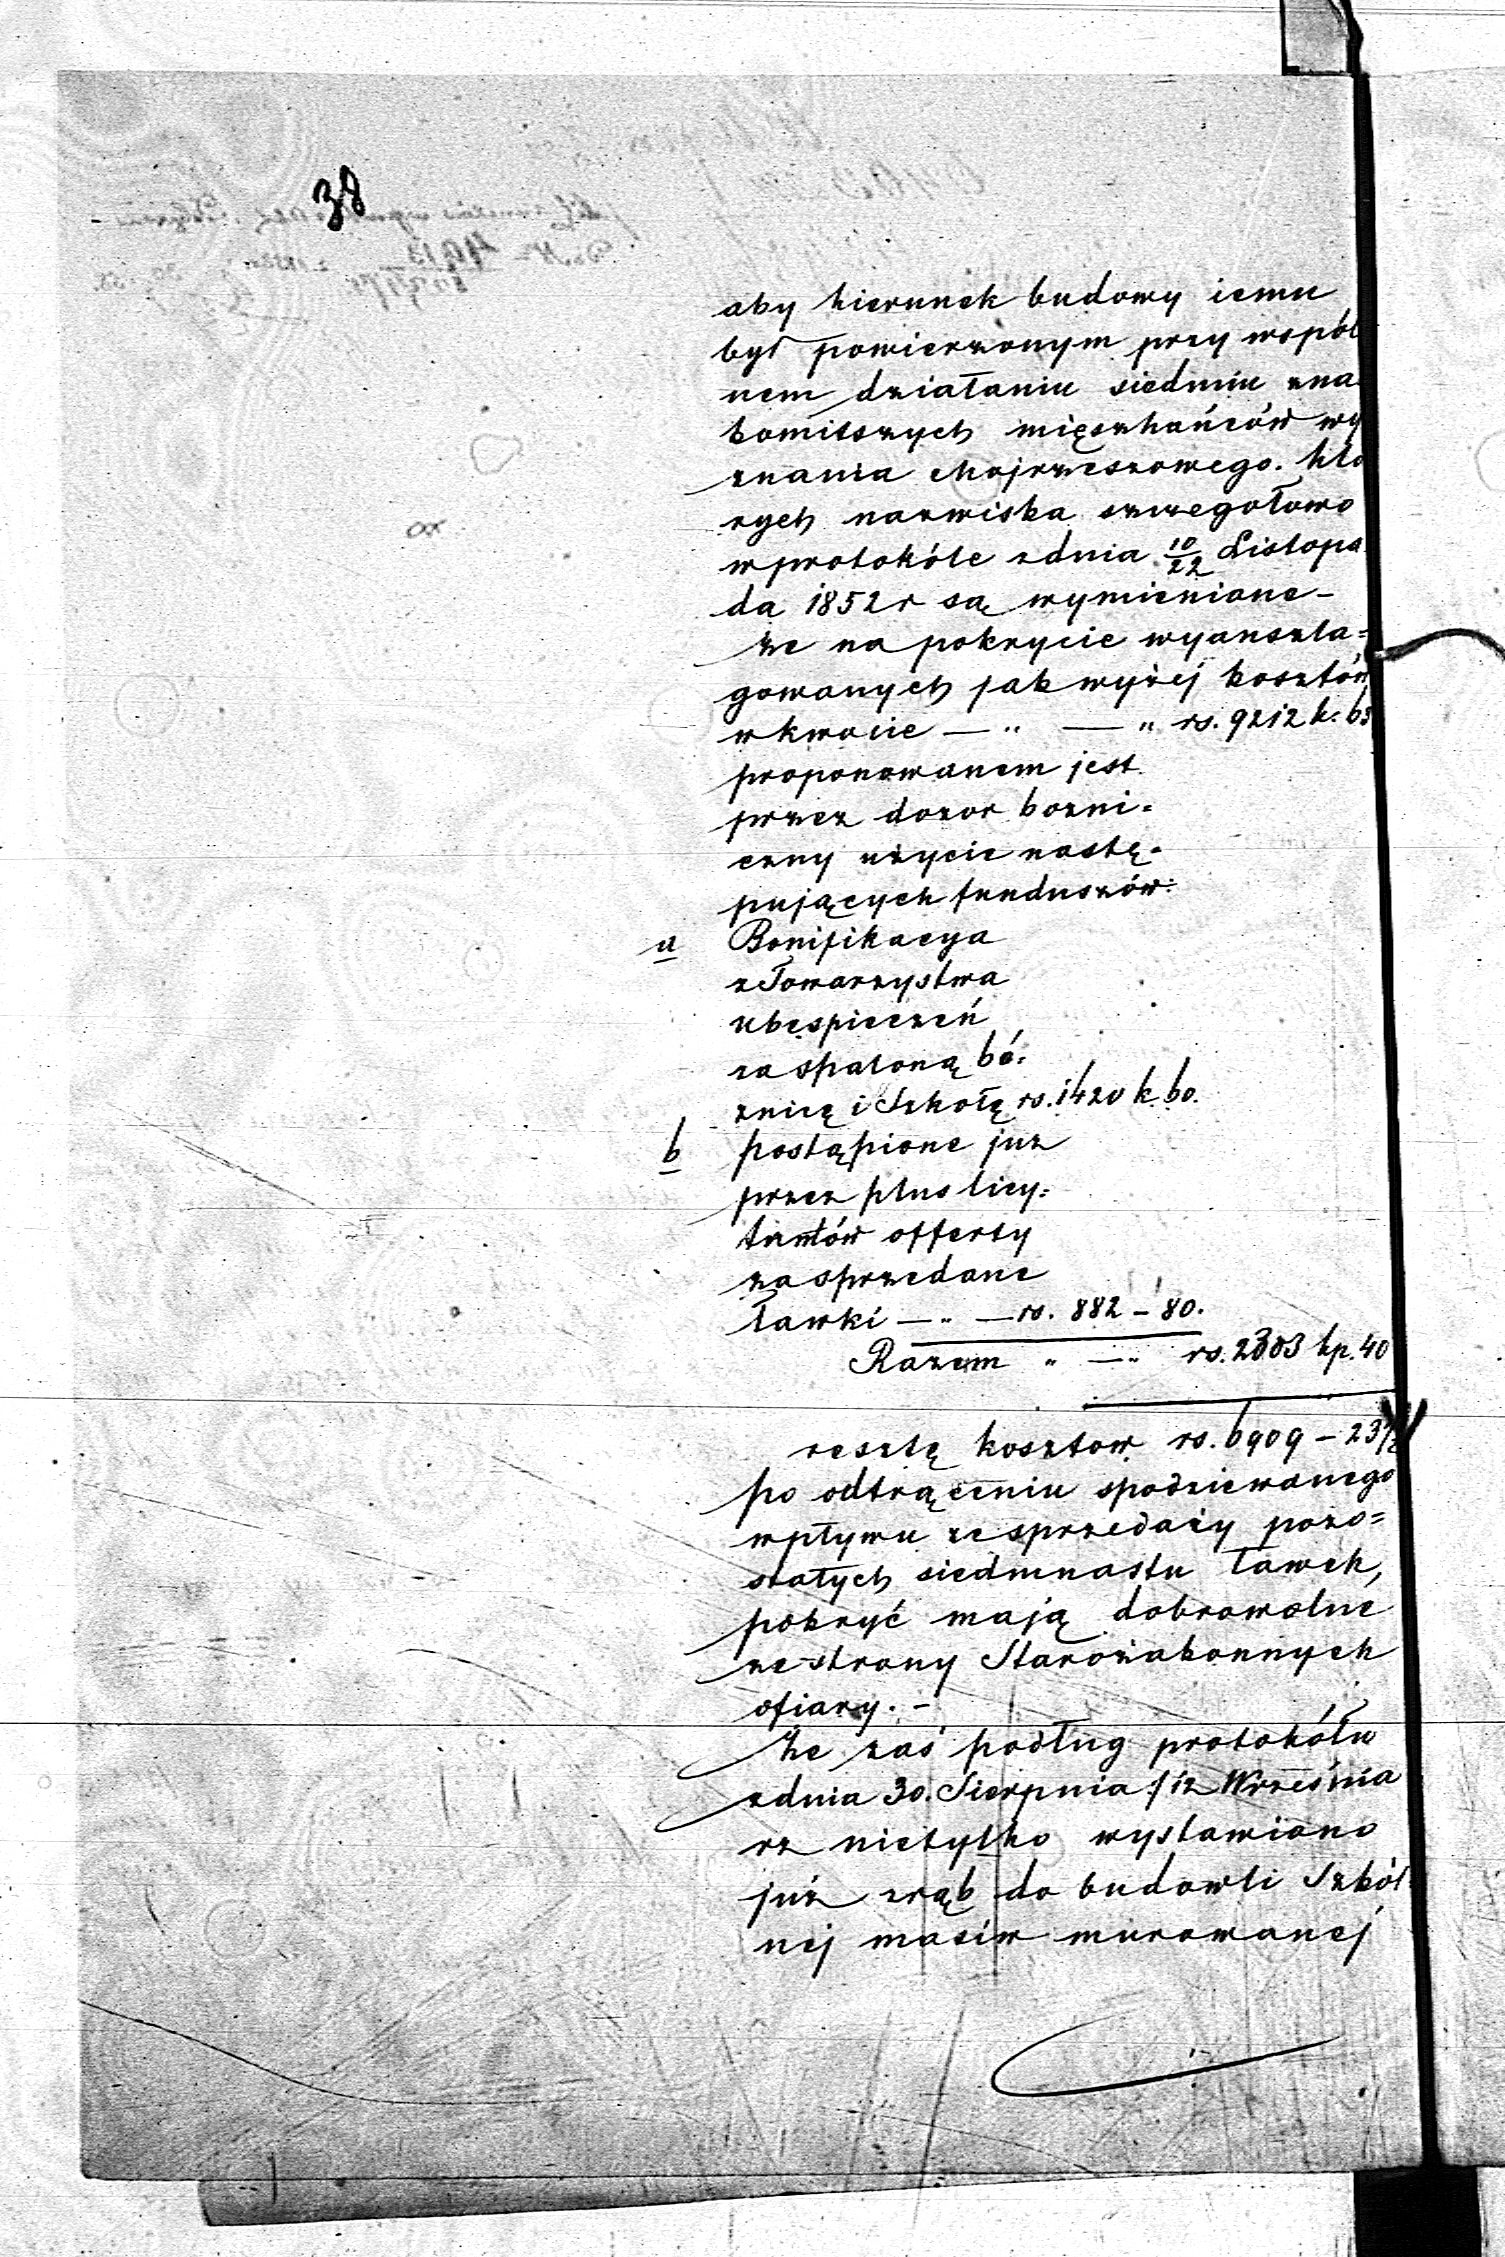 38
aby kierunek budowy iemu
był powierzonym przy wspól
nem działaniu siedmiu zna
komitszych mięszkańców wy
znania Mojrzeszowego. kto
rych nazwiska szczegołowo
w protokóle z dnia 10/22 Listopa
da 1852 r są wymienione –
że na pokrycie wyanszla=
gowanych jak wyżej kosztów
w kwocie — " — " rs. 9212 k. 63
proponowanem jest
przez dozor bozni=
czny użycie nastę=
pujących funduszów:
a Bonifikacya
z Towarzystwa
ubespieczeń
za spaloną bó=
znicę i Szkołę rs. 1420 k. 60.
b postąpione juz
przez plus licy=
tantów offerty
za sprzedane
ławki — " — rs. 882 – 80.
Razem " — " rs. 2303 kp. 40
resztę kosztow rs. 6909 – 23½
po odtrąceniu spodziewanego
wpływu ze sprzedaży pozo=
stałych siedmnastu ławek,
pokryć mają dobrowolne
ze strony Starozakonnych
ofiary. –
Że zaś podług protokółu
z dnia 30. Sierpnia / 12 Września
rz nietylko wystawiono
już zrąb do budowli Szkól
nej masiw murowanej